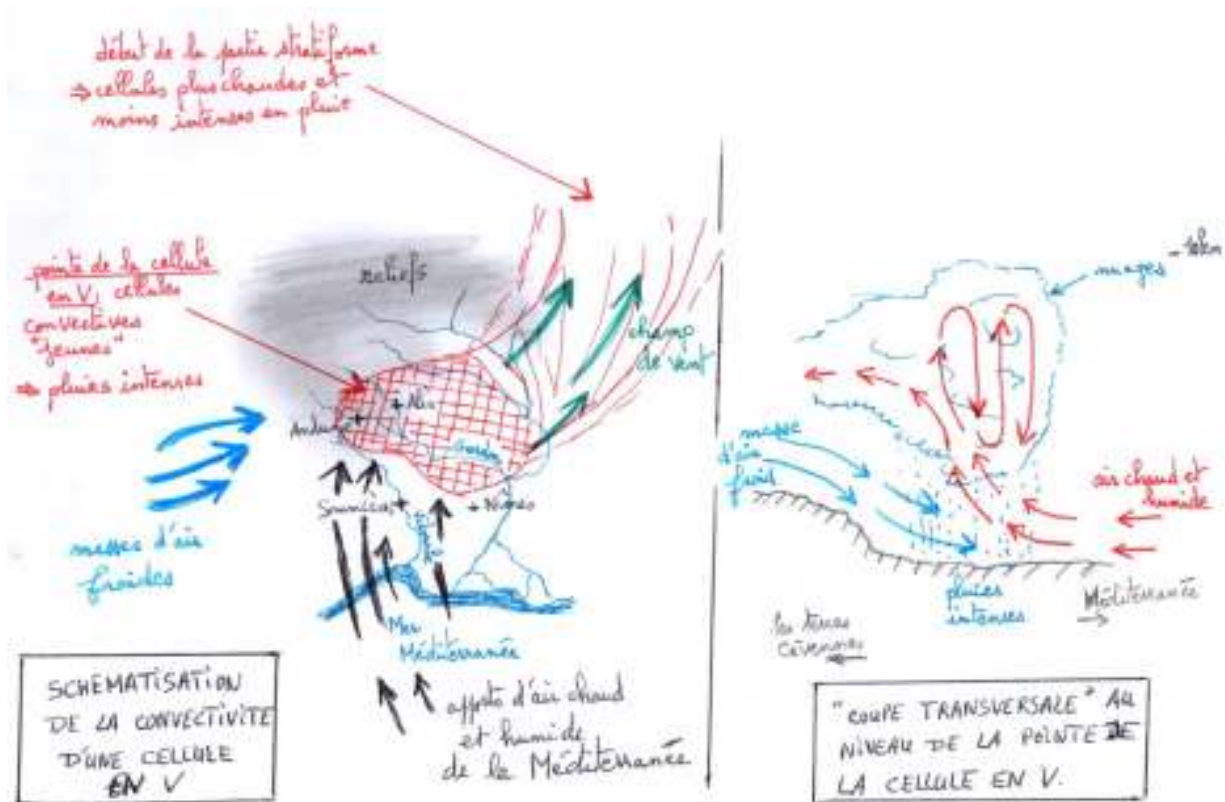 début de la partie stratiforme
⇒ cellules plus chaudes et
moins intenses en pluie
pointe de la cellule
en V, cellules
convectives
"jeunes"
⇒ pluies intenses
reliefs
champ
de vent
Alès
Anduze
Gardon
Sommières
Nîmes
masses d'air
froides
Mer
Méditerranée
apports d'air chaud
et humide
de la Méditerranée
SCHEMATISATION
DE LA CONVECTIVITE
D'UNE CELLULE
EN V
nuages
masse
d'air
froid
air chaud et
humide
pluies
intenses
Méditerranée
Cévennes
"COUPE TRANSVERSALE" AU
NIVEAU DE LA POINTE DE
LA CELLULE EN V.